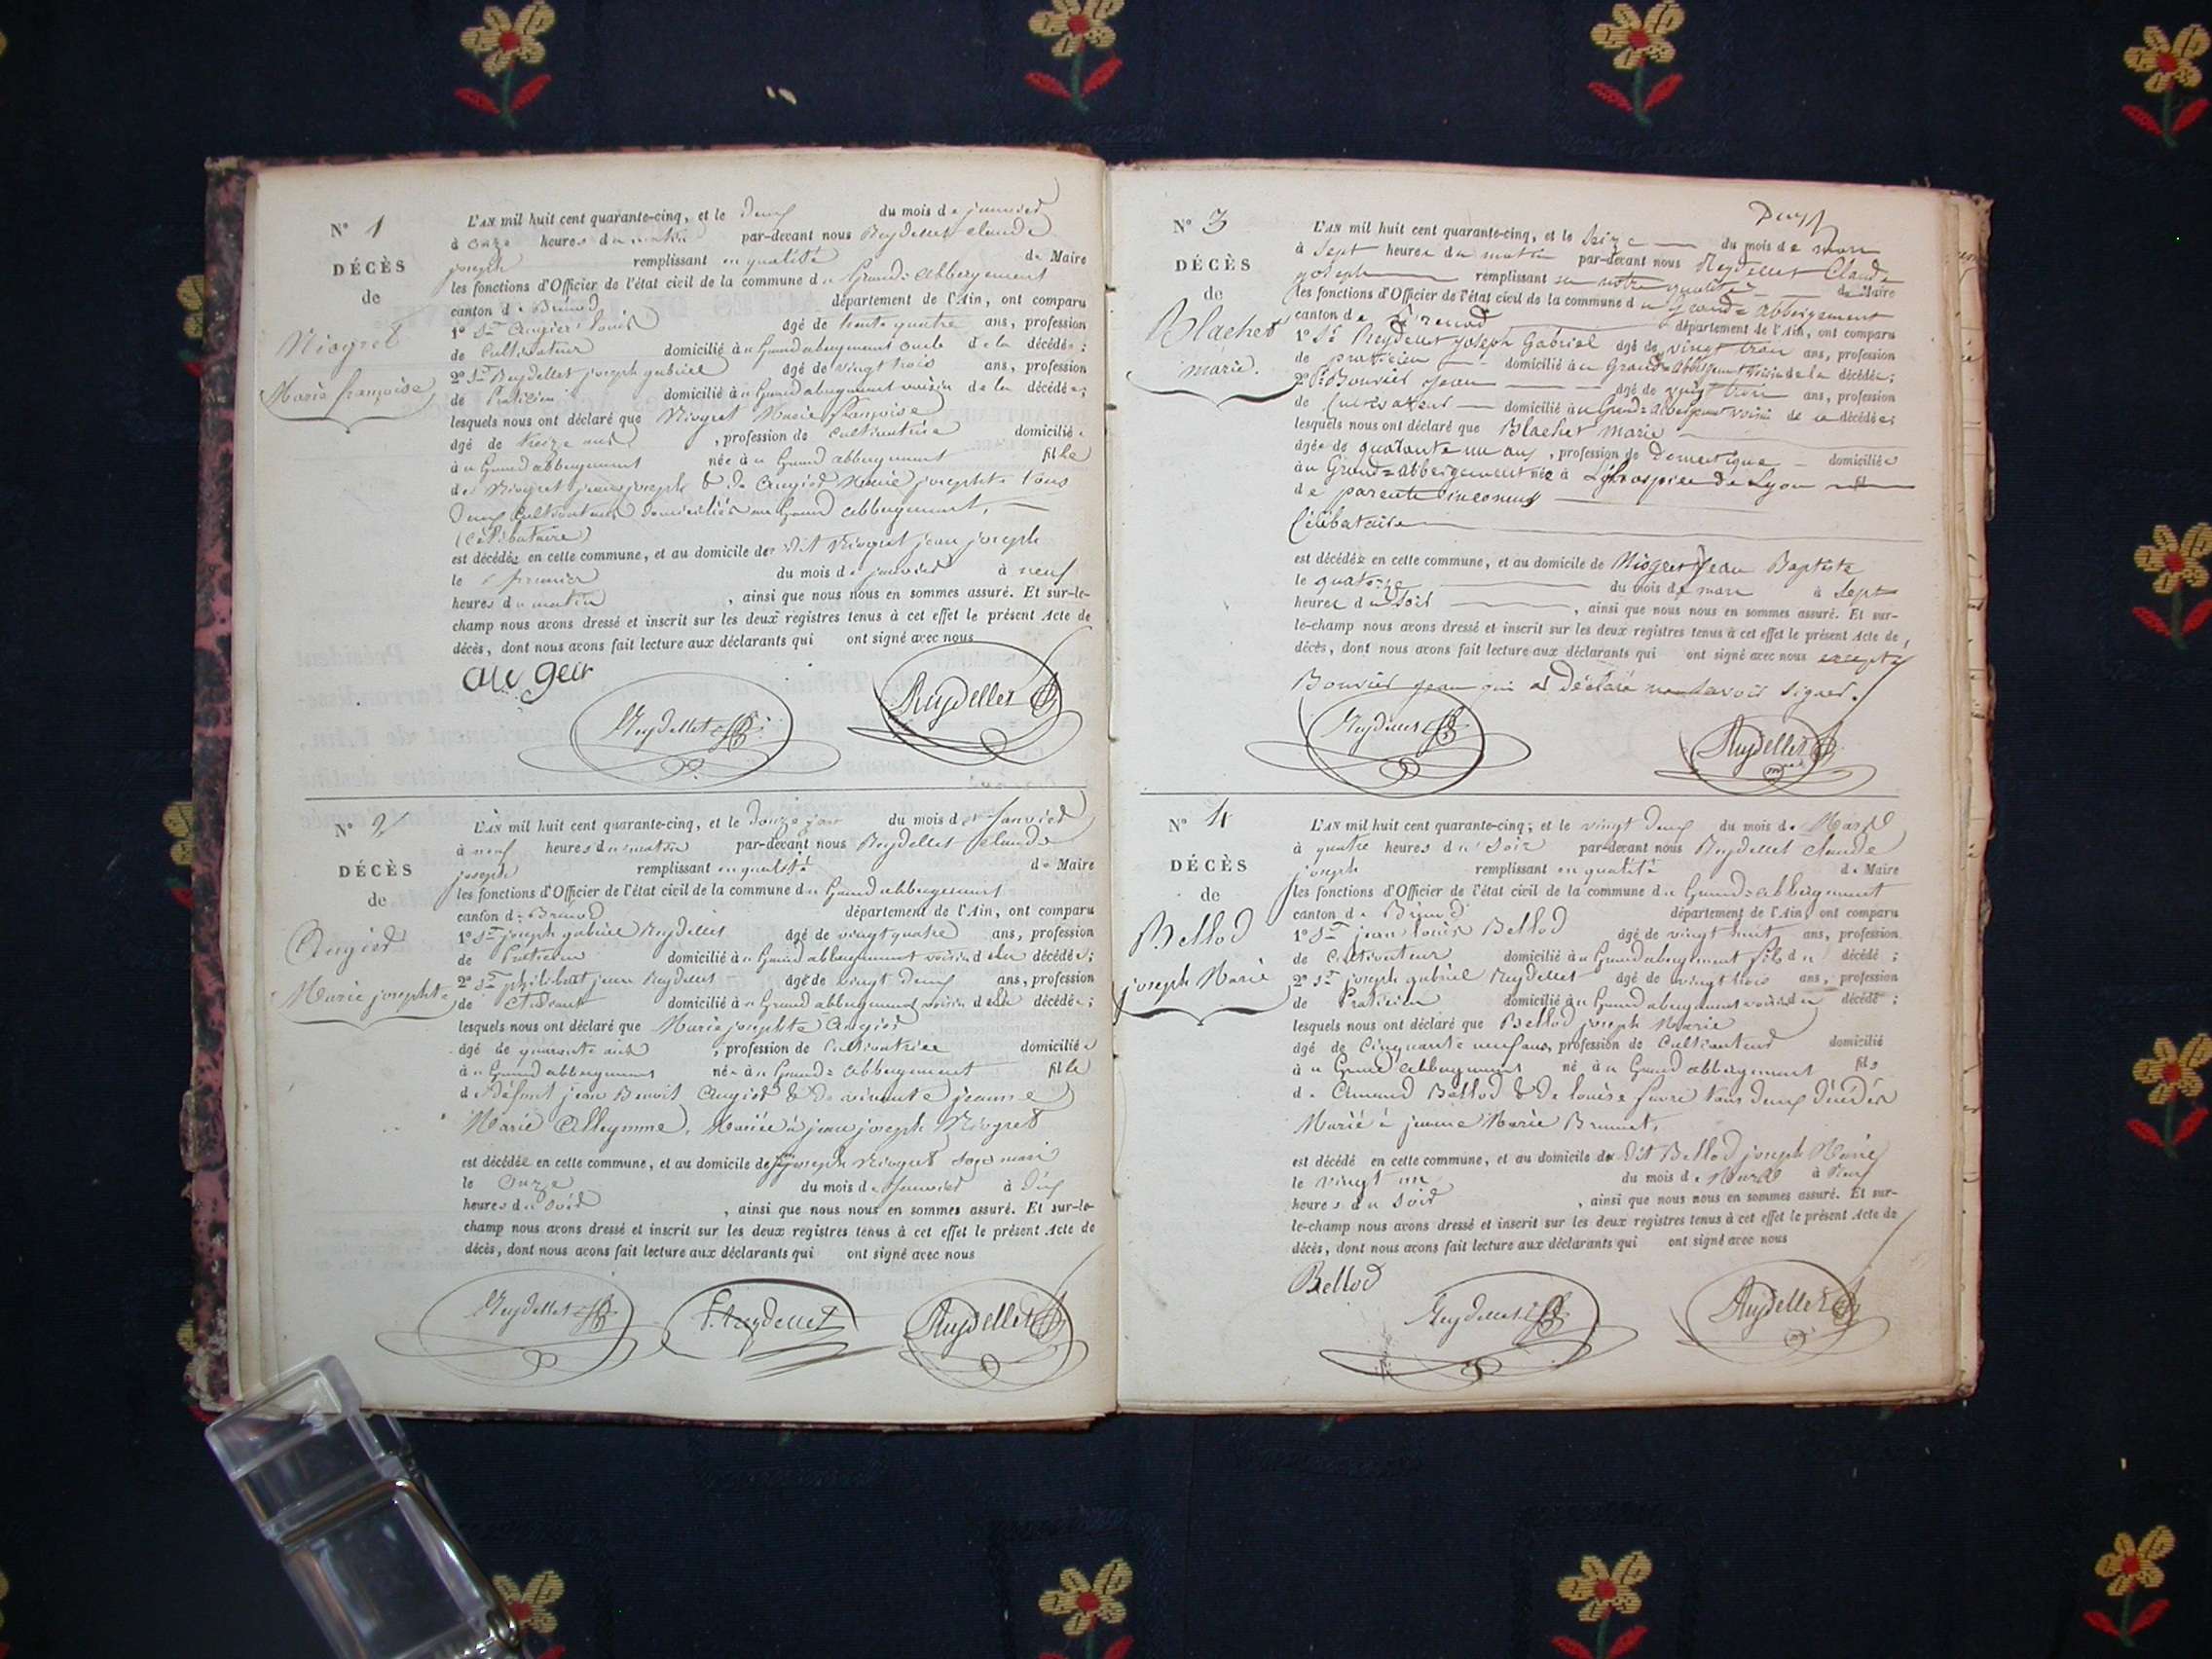 N° 1
DÉCÈS
de
Niogret
Marie françoise
L'AN mil huit cent quarante-cinq, et le deux du mois de janvier
à onze heures du matin par-devant nous Reydellet Claude
joseph remplissant en qualité de Maire
les fonctions d'Officier de l'état civil de la commune du Grand-abbergement
canton de Brénod département de l'Ain, ont comparu
1° Sr Augier louis âgé de trente quatre ans, profession
de Cultivateur domicilié au Grand abergement oncle de la décédée;
2° Sr Reydellet joseph gabriel âgé de vingt trois ans, profession
de Praticien domicilié au Grand abergement voisin de la décédée;
lesquels nous ont déclaré que Niogret Marie françoise
âgé de treize ans, profession de Cultivatrice domiciliée
à u Grand abbergement née à u Grand abbergement fille
de Niogret jean joseph & de Augier Marie josephte tous
deux Cultivateurs domiciliés au Grand abbergement,
(célibataire)
est décédée en cette commune, et au domicile de dit Niogret jean joseph
le premier du mois de janvier à neuf
heures du matin, ainsi que nous nous en sommes assuré. Et sur-le-
champ nous avons dressé et inscrit sur les deux registres tenus à cet effet le présent Acte de
décès, dont nous avons fait lecture aux déclarants qui ont signé avec nous
Reydellet Reydellet
N° 2
DÉCÈS
de
Augier
Marie josephte
L'AN mil huit cent quarante-cinq, et le douze du mois de Janvier
à neuf heures du matin par-devant nous Reydellet Claude
joseph remplissant en qualité de Maire
les fonctions d'Officier de l'état civil de la commune du Grand abbergement
canton de Brénod département de l'Ain, ont comparu
1° Sr joseph gabriel Reydellet âgé de vingt quatre ans, profession
de Praticien domicilié au Grand abbergement voisin de la décédée;
2° Sr philibert jean Reydellet âgé de vingt deux ans, profession
de Etudiant domicilié à u Grand abbergement voisin de la décédée;
lesquels nous ont déclaré que Marie josephte Augier
âgé de quarante ans, profession de Cultivatrice domiciliée
à u Grand abbergement née à u Grand-abbergement fille
de Défunt jean Benoit Augier & de vivante jeanne
Marie Alleymme, Mariée à jean joseph Niogret
est décédée en cette commune, et au domicile de joseph Niogret son mari
le onze du mois de Janvier à dix
heures du soir, ainsi que nous nous en sommes assuré. Et sur-le-
champ nous avons dressé et inscrit sur les deux registres tenus à cet effet le présent Acte de
décès, dont nous avons fait lecture aux déclarants qui ont signé avec nous
Reydellet Reydellet Reydellet
N° 3
DÉCÈS
de
Blachet
marie.
L'AN mil huit cent quarante-cinq, et le seize du mois de mars
à Sept heures du matin par-devant nous Reydellet Claude
joseph remplissant en notre qualité de Maire
les fonctions d'Officier de l'état civil de la commune du Grand-abbergement
canton de Brenod département de l'Ain, ont comparu
1° Sr Reydellet joseph Gabriel âgé de vingt trois ans, profession
de praticien domicilié à u Grand-abbergement voisin de la décédée;
2° Sr Bouvier Jean âgé de vingt trois ans, profession
de Cultivateur domicilié à u Grand-abbergement voisin de la décédée;
lesquels nous ont déclaré que Blachet Marie
âgée de quarante un ans, profession de Domestique domiciliée
au Grand-abbergement née à L'hospice de Lyon fil
de parents inconnus
Célibataire
est décédée en cette commune, et au domicile de Niogret Jean Baptiste
le quatorze du mois de mars à Sept
heures du Soir, ainsi que nous nous en sommes assuré. Et sur-
le-champ nous avons dressé et inscrit sur les deux registres tenus à cet effet le présent Acte de
décès, dont nous avons fait lecture aux déclarants qui ont signé avec nous excepté
Bouvier Jean qui a Déclaré ne savoir Signer.
Reydellet Reydellet
N° 4
DÉCÈS
de
Bellod
joseph Marie
L'AN mil huit cent quarante-cinq, et le vingt deux du mois de Mars
à quatre heures du soir par-devant nous Reydellet Claude
joseph remplissant en qualité de Maire
les fonctions d'Officier de l'état civil de la commune du Grand-abbergement
canton de Brénod département de l'Ain, ont comparu
1° Sr jean louis Bellod âgé de vingt huit ans, profession
de Cultivateur domicilié à u Grand abergement fils du décédé;
2° Sr joseph gabriel Reydellet âgé de vingt trois ans, profession
de Praticien domicilié à u Grand abergement voisin du décédé;
lesquels nous ont déclaré que Bellod joseph Marie
âgé de Cinquante neuf ans, profession de Cultivateur domicilié
à u Grand abbergement né à u Grand abbergement fils
de Armand Bellod & de louise favre tous deux décédés
Marié à jeanne Marie Brunet,
est décédé en cette commune, et au domicile du dit Bellod joseph Marie
le vingt un du mois de Mars à neuf
heures du Soir, ainsi que nous nous en sommes assuré. Et sur-
le-champ nous avons dressé et inscrit sur les deux registres tenus à cet effet le présent Acte de
décès, dont nous avons fait lecture aux déclarants qui ont signé avec nous
Bellod Reydellet Reydellet